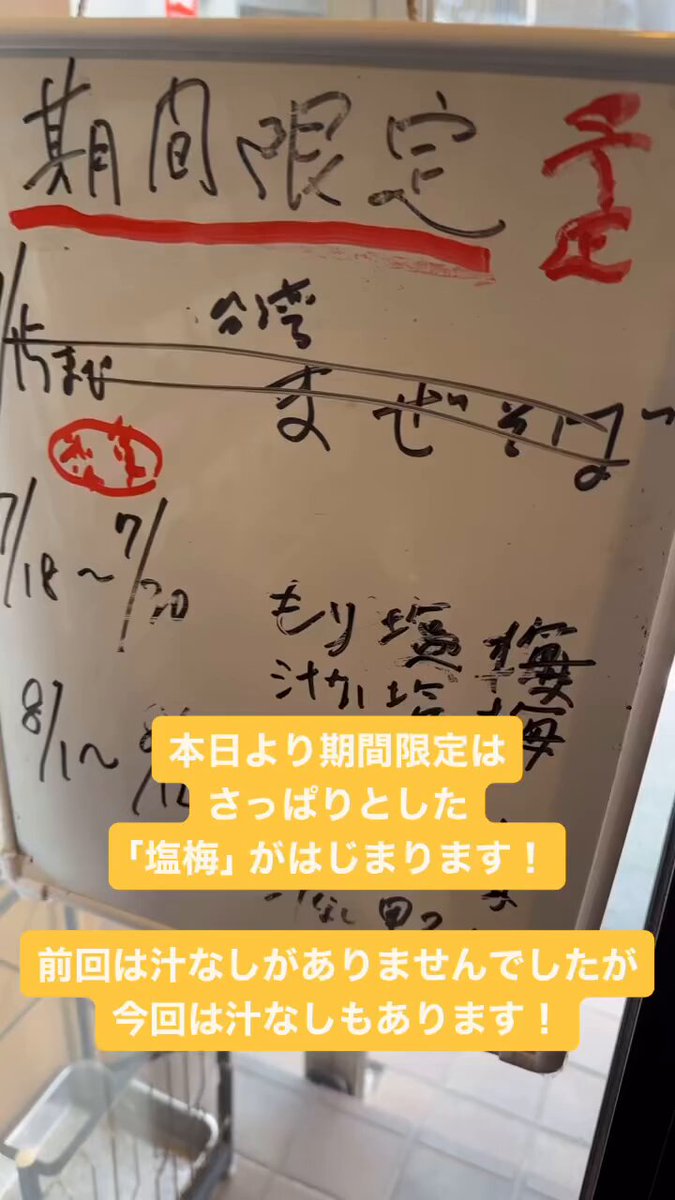 期間限定
予定
台湾
まぜそば
7/18〜7/20
もり塩梅
汁なし塩梅
8/1〜8/12
本日より期間限定は
さっぱりとした
「塩梅」がはじまります！
前回は汁なしがありませんでしたが
今回は汁なしもあります！